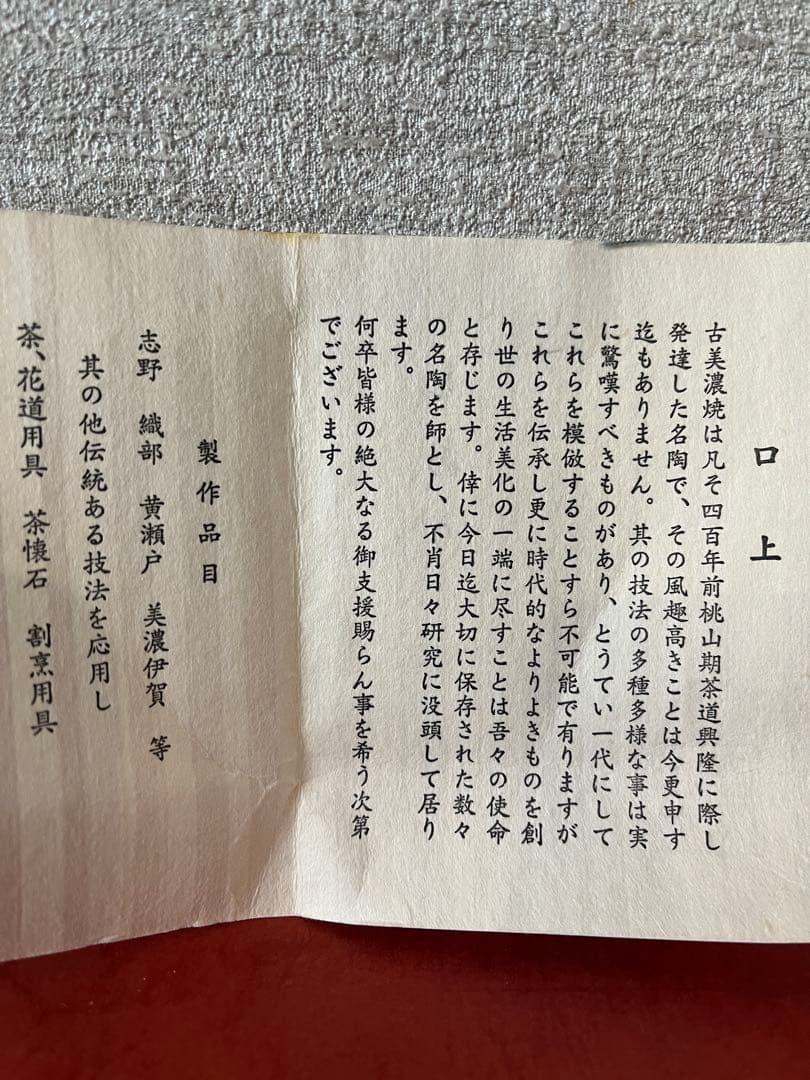 口上
古美濃焼は凡そ四百年前桃山期茶道興隆に際し
発達した名陶で、その風趣高きことは今更申す
迄もありません。其の技法の多種多様な事は実
に驚嘆すべきものがあり、とうてい一代にして
これらを模倣することすら不可能で有りますが
これらを伝承し更に時代的なよりよきものを創
り世の生活美化の一端に尽すことは吾々の使命
と存じます。倖に今日迄大切に保存された数々
の名陶を師とし、不肖日々研究に没頭して居り
ます。
何卒皆様の絶大なる御支援賜らん事を希う次第
でございます。
製作品目
志野 織部 黄瀬戸 美濃伊賀 等
其の他伝統ある技法を応用し
茶、花道用具 茶懐石 割烹用具